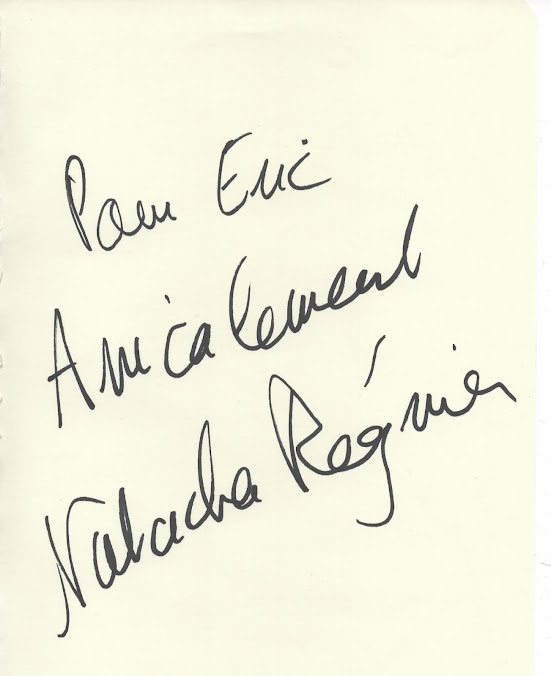 Pour Eric
Amicalement
Natacha Régnier